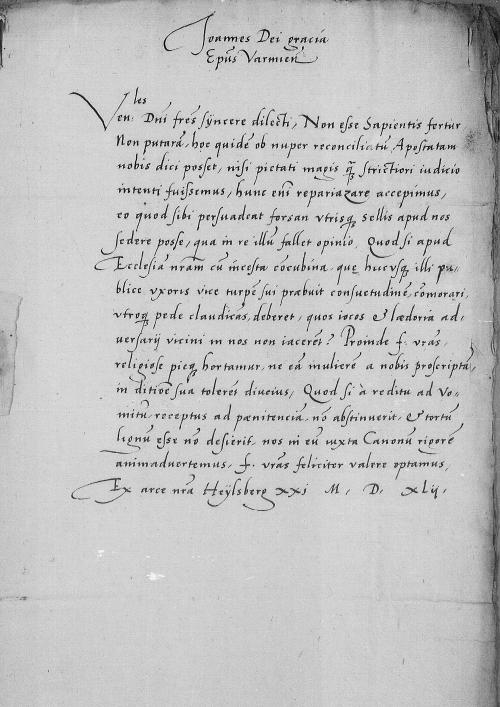 Joannes Dei gracia
Epūs Varmień
Ven: les Dñi frēs syncere dilecti, Non esse Sapientis fertur
Non putarā, hoc quidē ob nuper reconciliatū Apostatam
nobis dici posset, nisi pietati magis q̃ strictiori iudicio
intenti fuissemus, hunc em̄ accepimus,
eo quod sibi persuadeat forsan vtrisq; sellis apud nos
sedere posse, qua in re illū fallet opinio. Quod si apud
Ecclesiā nrām cū incesta cōcubina, que hucusq; illi pu-
blice vxoris vice turpē sui prabuit consuetudinē, cōmorari,
vtroq; pede claudicās, deberet, quos iocos & lædoria ad-
uersarij vicini in nos non iacerēt? Proinde f. vrās,
religiose pieq; hortamur, ne eā mulierē a nobis proscriptā,
in ditiōe sua tolerēt diucius, Quod si à reditu ad Vo-
mitū, receptus ad pænitenciā, nō abstinuerit, & tortū
lignū esse nō desierit, nos in eū iuxta Canonū rigorē
animaduertemus, f. vrās feliciter valere optamus,
Ex arce nrā Heÿlsberg xxj M. D. xlij.